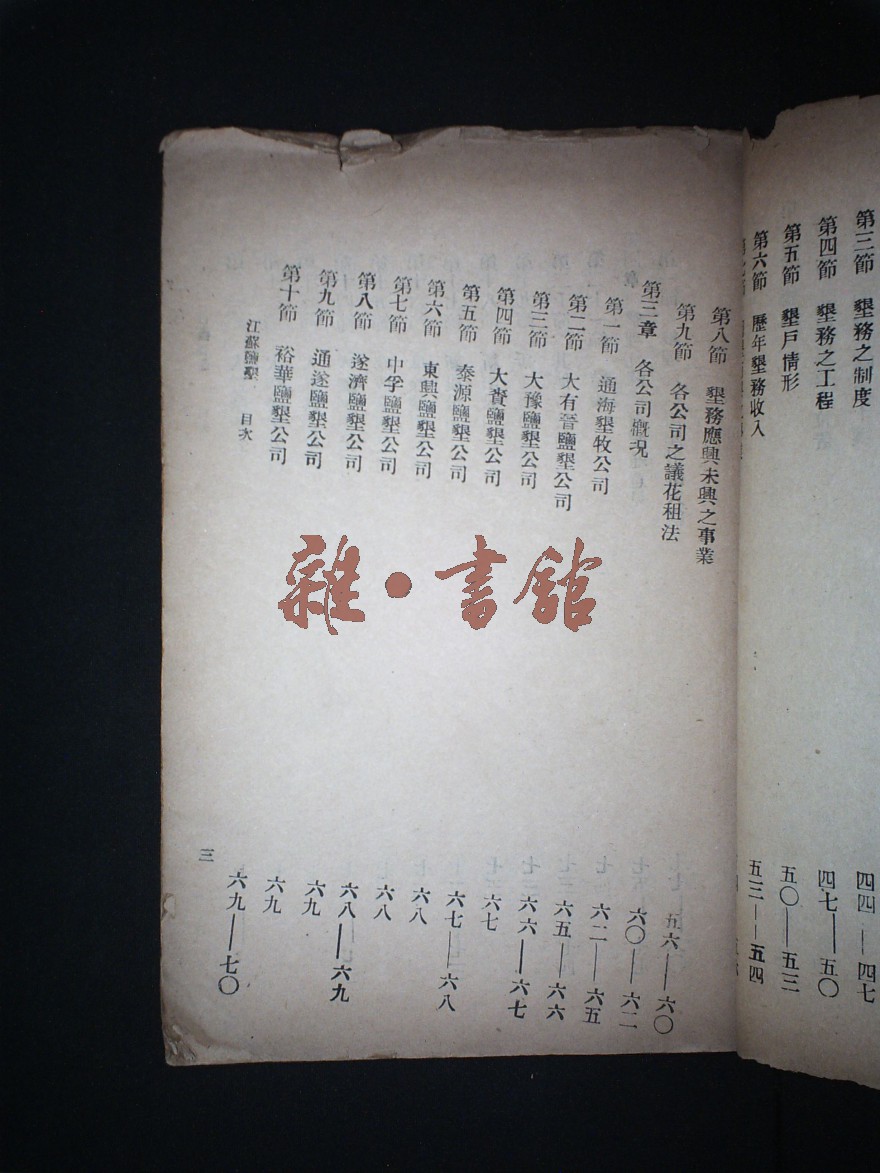 第三節　墾務之制度　四四——四七
第四節　墾務之工程　四七——五〇
第五節　墾戶情形　五〇——五三
第六節　歷年墾務收入　五三——五四
第八節　墾務應興未興之事業　五六——六〇
第九節　各公司之議花租法　六〇——六二
第三章　各公司概況　六二——六五
第一節　通海墾牧公司　六五——六六
第二節　大有晉鹽墾公司　六六——六七
第三節　大豫鹽墾公司　六七
第四節　大賚鹽墾公司　六七——六八
第五節　泰源鹽墾公司　六八
第六節　東興鹽墾公司　六八
第七節　中孚鹽墾公司　六八——六九
第八節　遂濟鹽墾公司　六九
第九節　通遂鹽墾公司　六九
第十節　裕華鹽墾公司　六九——七〇
江蘇鹽墾　目次　三
雜·書館